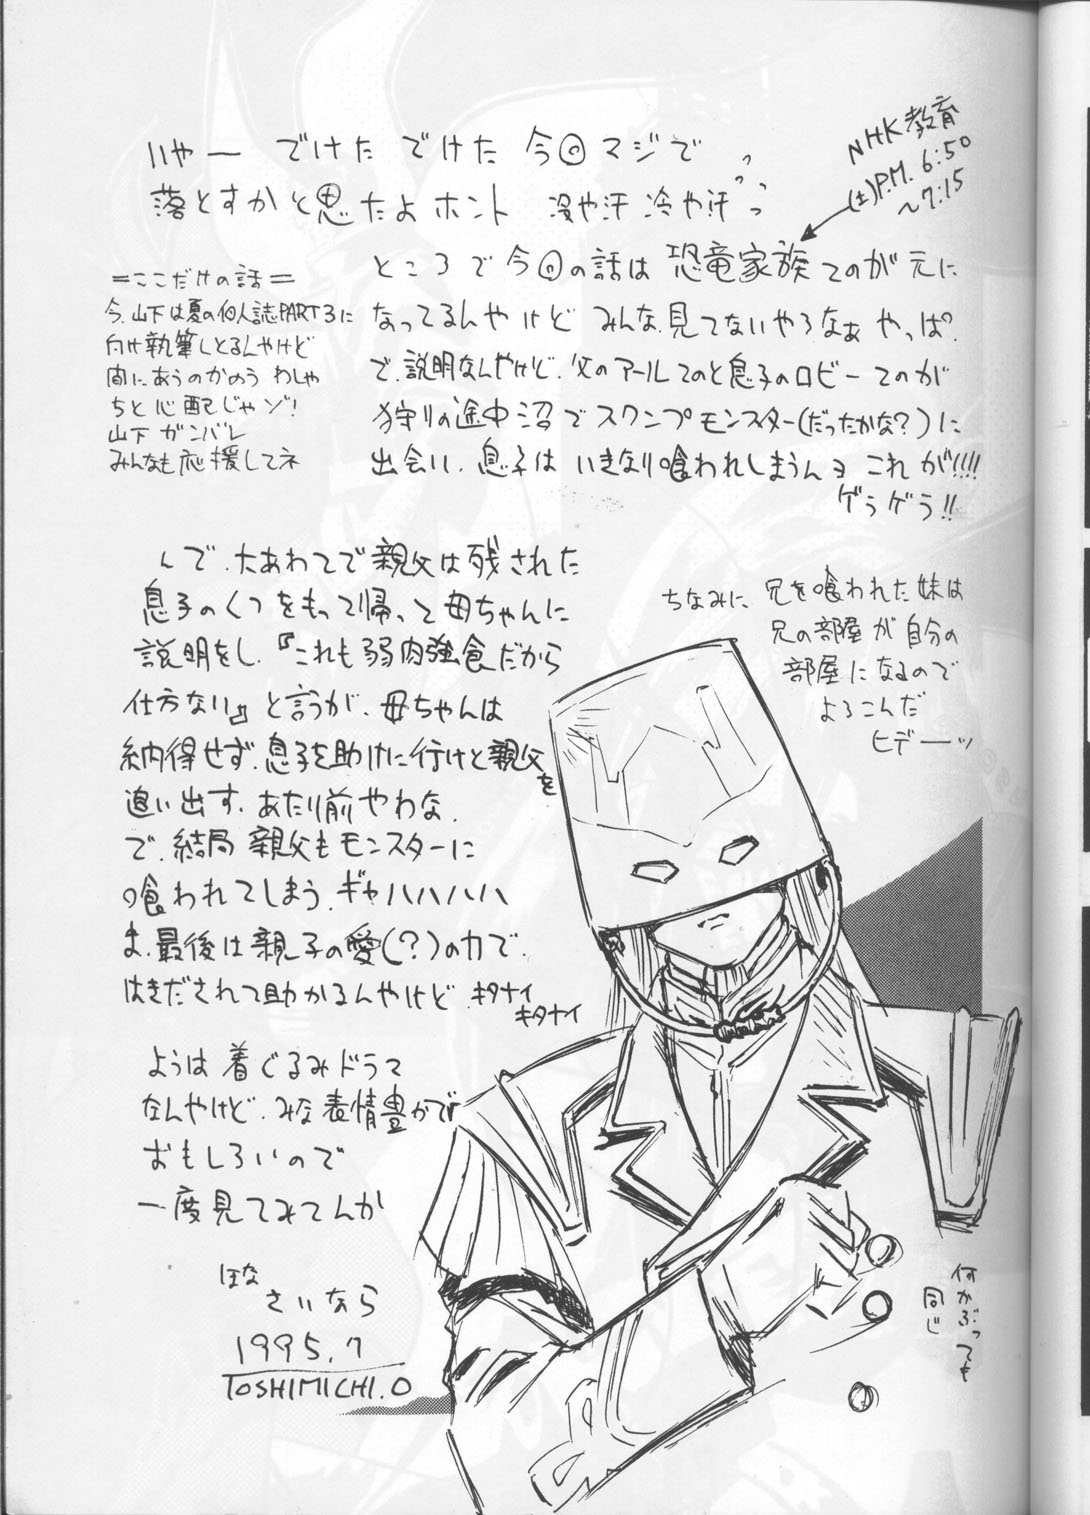 いやー でけた でけた 今回マジで
落とすかと思たよホント 冷や汗 冷や汗
NHK教育
(土)P.M. 6:50
〜7:15
ところで今回の話は 恐竜家族 てのが元に
なってるんやけど みんな見てないやろなぁ やっぱ。
で、説明なんやけど、父のアールてのと息子のロビーてのが
狩りの途中沼でスワンプモンスター(だったかな?)に
出会い、息子は いきなり喰われしまうんヨ これが!!!!
ゲラゲラ!!
=ここだけの話=
今、山下は夏の個人誌PART3に
向け執筆しとるんやけど
間にあうのかのう わしゃ
ちと心配じゃゾ!
山下 ガンバレ
みんなも応援してネ
んで、大あわてで親父は残された
息子のくつをもって帰って母ちゃんに
説明をし、『これも弱肉強食だから
仕方ない』と言うが、母ちゃんは
納得せず、息子を助けに行けと親父を
追い出す、あたり前やわな、
で、結局 親父もモンスターに
喰われてしまう、ギャハハハハハ
ま、最後は親子の愛(?)の力で、
はきだされて助かるんやけど キタナイ
キタナイ
ちなみに 兄を喰われた妹は
兄の部屋が自分の
部屋になるので
よろこんだ
ヒデーッ
ようは 着ぐるみドラマ
なんやけど、みな表情豊かで
おもしろいので
一度見てみてんか
ほな
さいなら
1995.7
TOSHIMICHI.O
何かぶっても
同じ